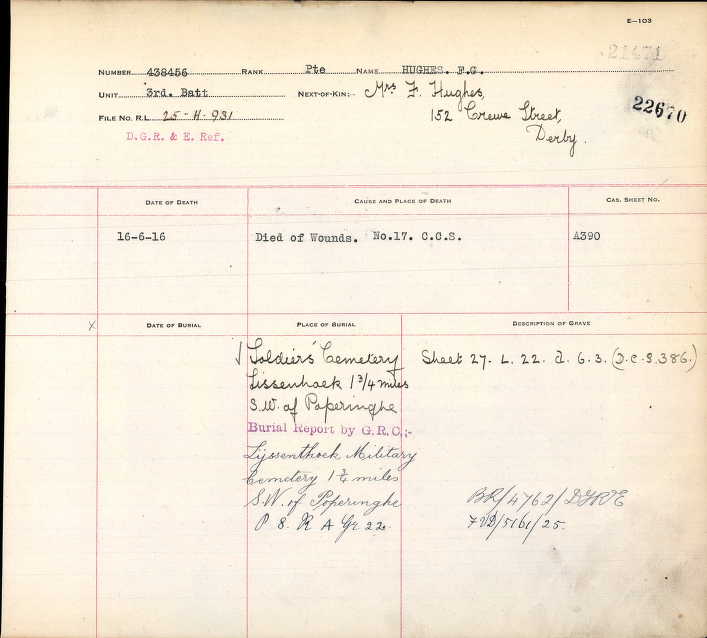 E-103
21471
NUMBER 438456 RANK Pte NAME HUGHES. F.G.
UNIT 3rd. Batt NEXT-OF-KIN:- Mrs F. Hughes,
22670
FILE NO. R.L. 25-H-931 152 Crewe Street,
D.G.R. & E. Ref. Derby.
DATE OF DEATH CAUSE AND PLACE OF DEATH CAS. SHEET NO.
16-6-16 Died of Wounds. No.17. C.C.S. A390
X DATE OF BURIAL PLACE OF BURIAL DESCRIPTION OF GRAVE
Soldiers' Cemetery Sheet 27. L. 22. d. 6.3. (D.C.S.386.)
Lissenhoek 1 3/4 miles
S.W. of Poperinghe
Burial Report by G.R.C.:-
Lijssenthoek Military
Cemetery 1 3/4 miles
S.W. of Poperinghe BR/4762/DGRE
P 8. R A Gr 22 7VD/5161/25.